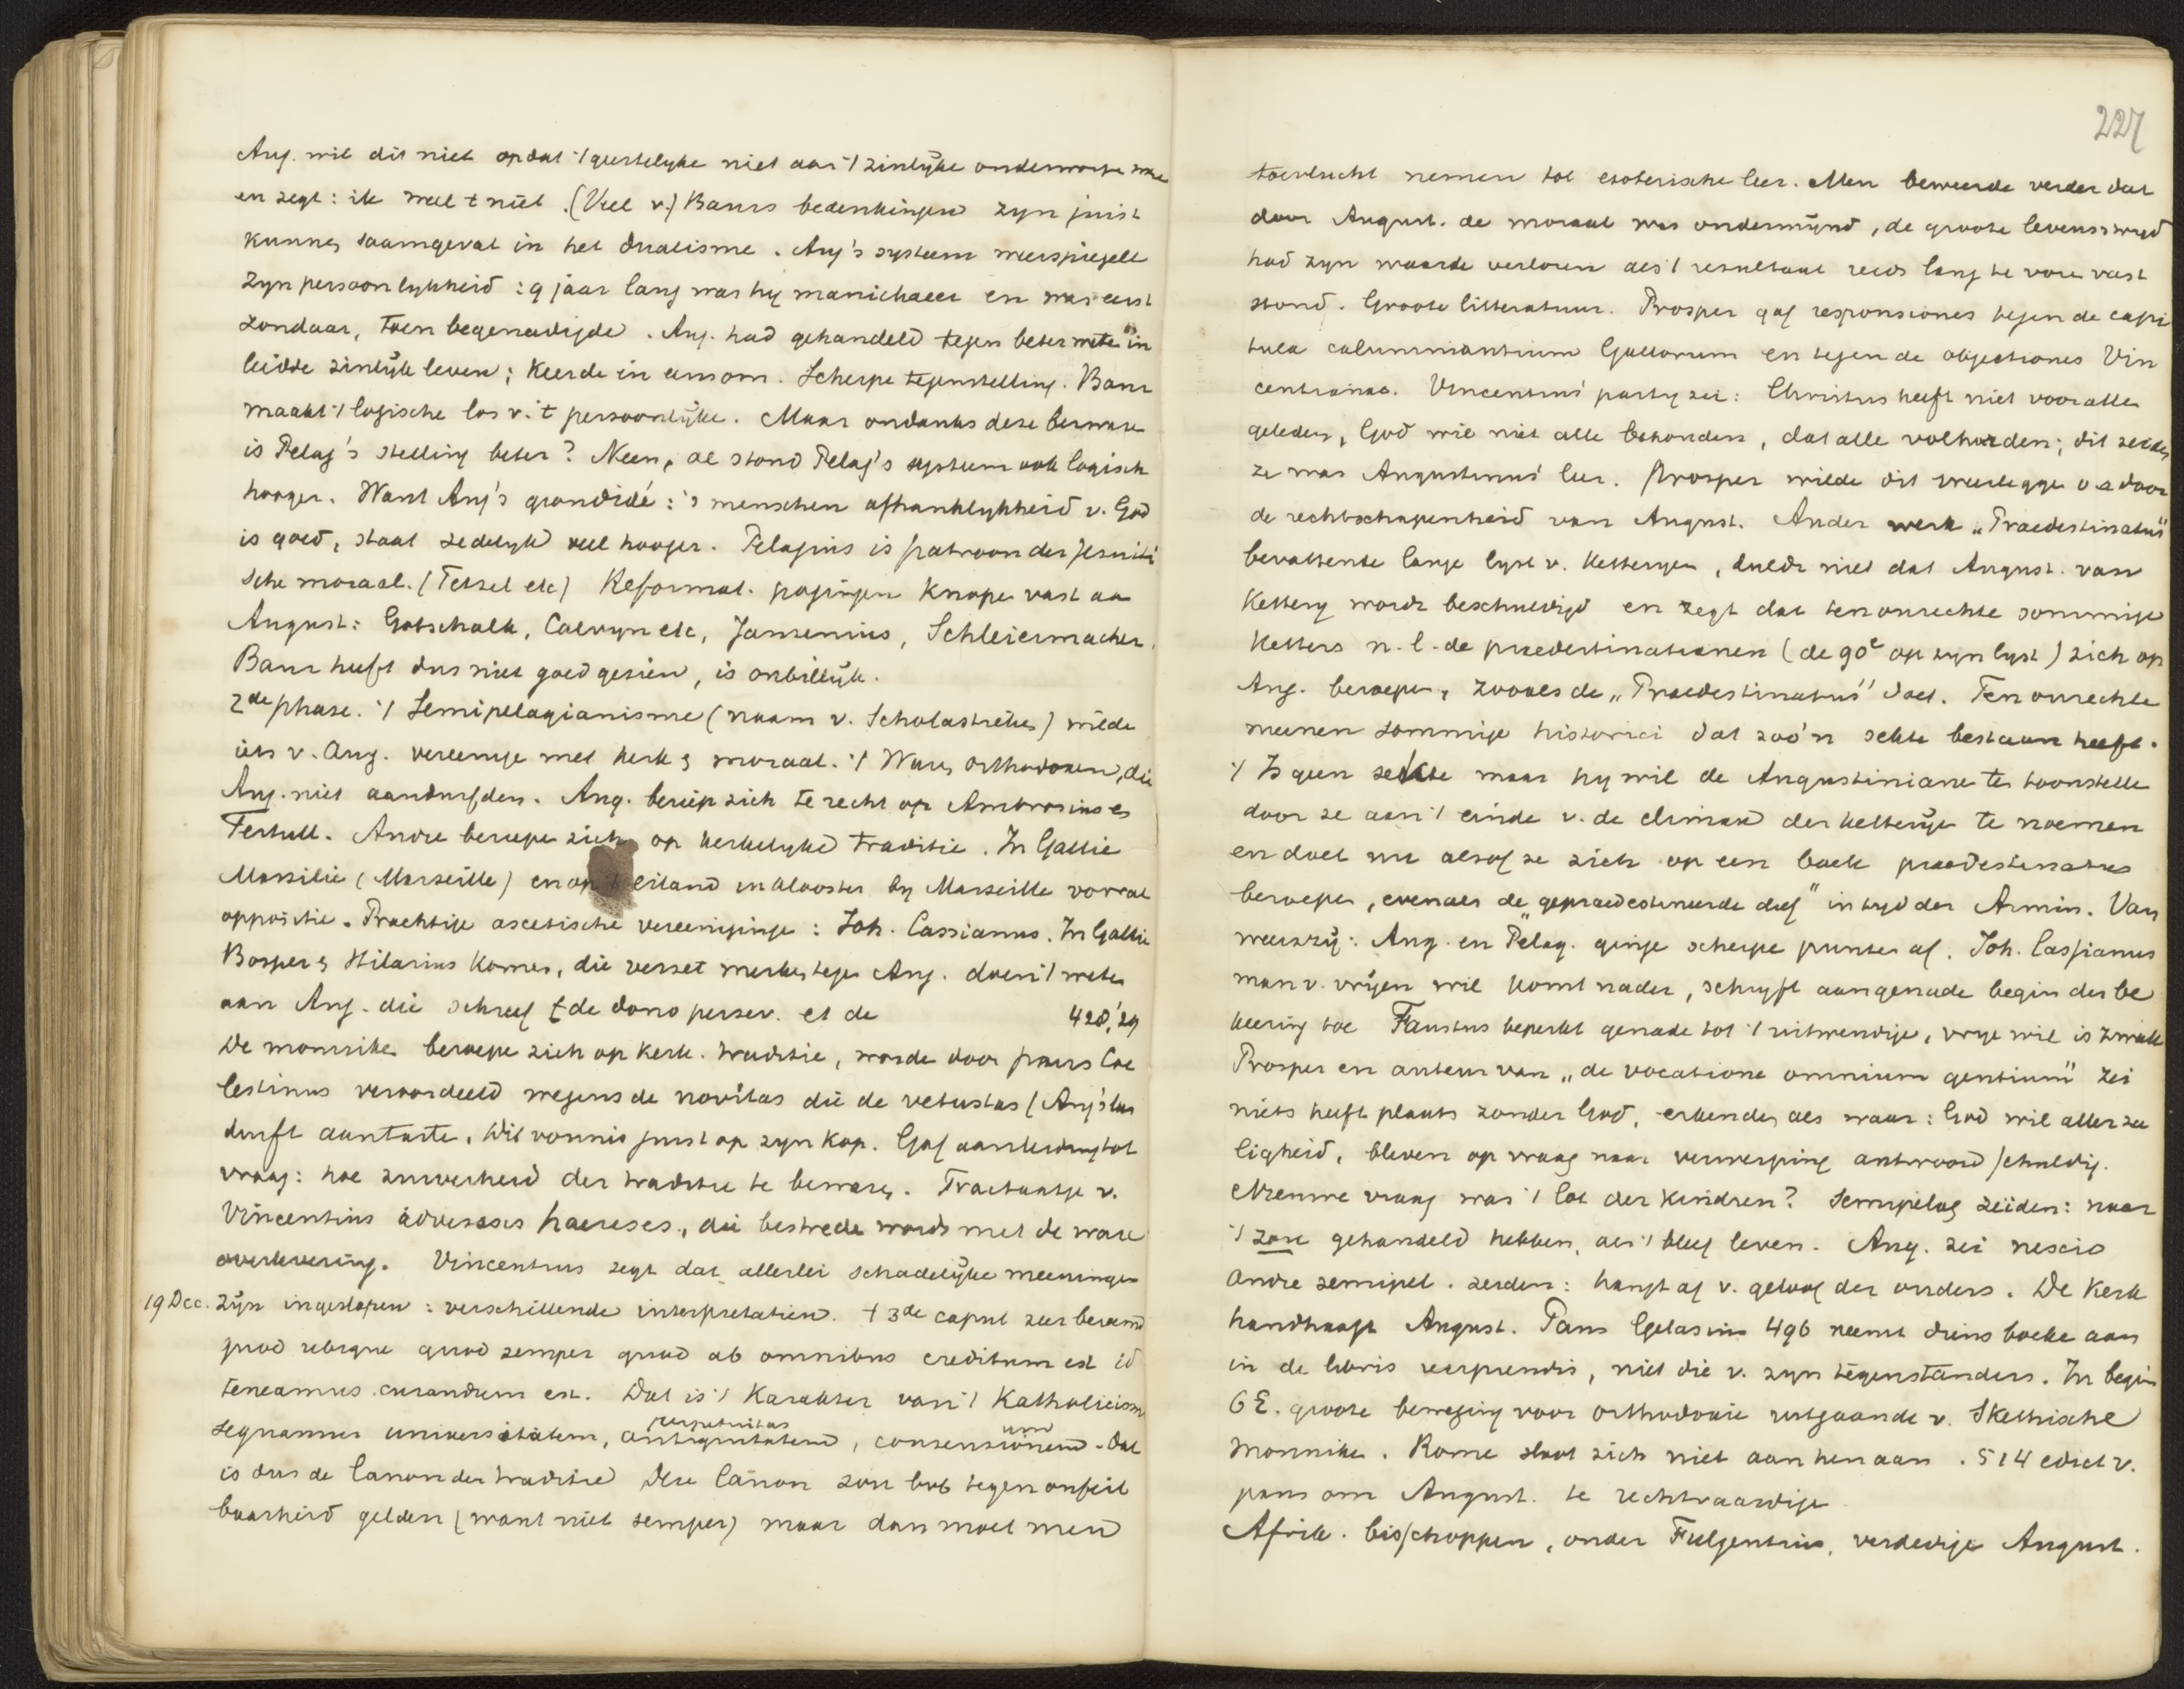 Aug. wil dit niet opdat 't geestelyke niet aan 't zinlyke onderworpe
en zegt: ik weet 't niet. (Veel v.) Baurs bedenkingen zyn juist
kunnen saamgevat in het dualisme. Aug's systeem weerspiegelt
zyn persoonlykheid: 9 jaar lang was hy manichaeer en was eerst
zondaar, toen begenadigde. Aug. had gehandeld tegen beter wete in
leidde zinlyk leven; keerde in eens om. Scherpe tegenstelling. Baur
maakt 't logische los v. 't persoonlyke. Maar ondanks deze bezwaren
is Pelag's stelling beter? Neen, al stond Pelag's systeem ook logisch
hooger. Want Aug's grondidé: 's menschen afhanklykheid v. God
is goed, staat zedelyk veel hooger. Pelagius is patroon der Jesuiti
sche moraal. (Tetzel etc) Reformat. pogingen knope vast aan
August: Gotschalk, Calvyn etc, Jansenius, Schleiermacher.
Baur heeft dus niet goed gezien, is onbillyk.
2de phase. 't Semipelagianisme (naam v. Scholastieke) wilde
iets v. Aug. vereenige met kerk & moraal. 't Ware orthodoxen, die
Aug. niet aandurfden. Aug. beriep zich te recht op Ambrosius en
Tertull. Andre beriepe zich op kerkelyke traditie. In Gallie
Massilie (Marseille) en op 't eiland en klooster by Marseille vooral
oppositie. Prachtige ascetische vereeniginge: Joh. Cassianus. In Gallie
Prosper & Hilarius komen, die verzet merken tegen Aug. doen 't weten
aan Aug. die schreef de dono persev. et de 428, 29
De monniken beroepe zich op kerk. traditie, worde door paus Coe
lestinus veroordeeld wegens de novitas die de vetustas (Aug's leer
durft aantaste. Dit vonnis juist op zyn kop. Gaf aanleiding tot
vraag: hoe zuiverheid der traditie te bewaren. Tractaatje v.
Vincentius adversus haereses, die bestreden wordt met de ware
overlevering. Vincentius zegt dat allerlei schadelyke meeningen
19 Dec. zyn ingeslopen: verschillende interpretatien. 't 3de caput zeer beroemd
quod ubique quod semper quod ab omnibus creditum est id
teneamus curandum est. Dat is 't karakter van 't Katholicisme
sequamur universitatem, antiquitatem, consensionem. Dat
is dus de Canon der traditie Deze Canon zou ook tegen onfeil
baarheid gelden (want niet semper) maar dan moet men
227
toevlucht nemen tot esoterische leer. Men beweerde verder dat
door August. de moraal was ondermynd, de groote levensstryd
had zyn waarde verloren als 't resultaat reeds lang te vore vast
stond. Groote litteratuur. Prosper gaf responsiones tegen de capi
tula calumniantium Gallorum en tegen de objectiones Vin
centianae. Vincentius' party zei: Christus heeft niet voor allen
geleden, God wil niet alle behouden, dat alle volharden; dit zeiden
ze was Augustinus' leer. Prosper wilde dit weerlegge o a door
de rechtschapenheid van August. Ander werk "Praedestinatus"
bevattende lange lyst v. ketteryen, duldt niet dat August. van
kettery wordt beschuldigd en zegt dat ten onrechte sommige
ketters n.l. de praedestinatianen (de 90e op zyn lyst) zich op
Aug. beroepe, zooals de "Praedestinatus" doet. Ten onrechte
meenen sommige historici dat zoo'n sekte bestaan heeft.
't Is geen sekte maar hy wil de Augustiniane te toonstelle
door ze aan 't einde v. de climax der ketterye te noemen
en doet nu alsof ze zich op een boek praedestinatus
beroepe, evenals de "gepraedestineerde dief" in tyd der Armin. Van
weerszy: Aug. en Pelag. ginge scherpe punten af. Joh. Cassianus
man v. vryen wil komt nader, schryft aan genade begin der be
keering toe Faustus beperkt genade tot 't uitwendige, vrye wil is zwak
Prosper en auteur van "de vocatione omnium gentium" zei
niets heeft plaats zonder God, erkenden als waar: God wil aller za
ligheid, bleven op vraag naar verwerping antwoord schuldig.
Nieuwe vraag was 't lot der kindren? Semipelag zeiden: naar
't zou gehandeld hebben, als 't bleef leven. Aug. zei nescio
Andre semipel. zeiden: hangt af v. geloof der ouders. De Kerk
handhaaft August. Paus Gelasius 496 neemt diens boeke aan
in de libris recipiendis, niet die v. zyn tegenstanders. In begin
6 E. groote beweging voor orthodoxie uitgaande v. Skythische
monniken. Rome sloot zich niet aan hen aan. 514 edict v.
paus om August. te rechtvaardige.
Afrik. bisschoppen, onder Fulgentius, verdedige August.